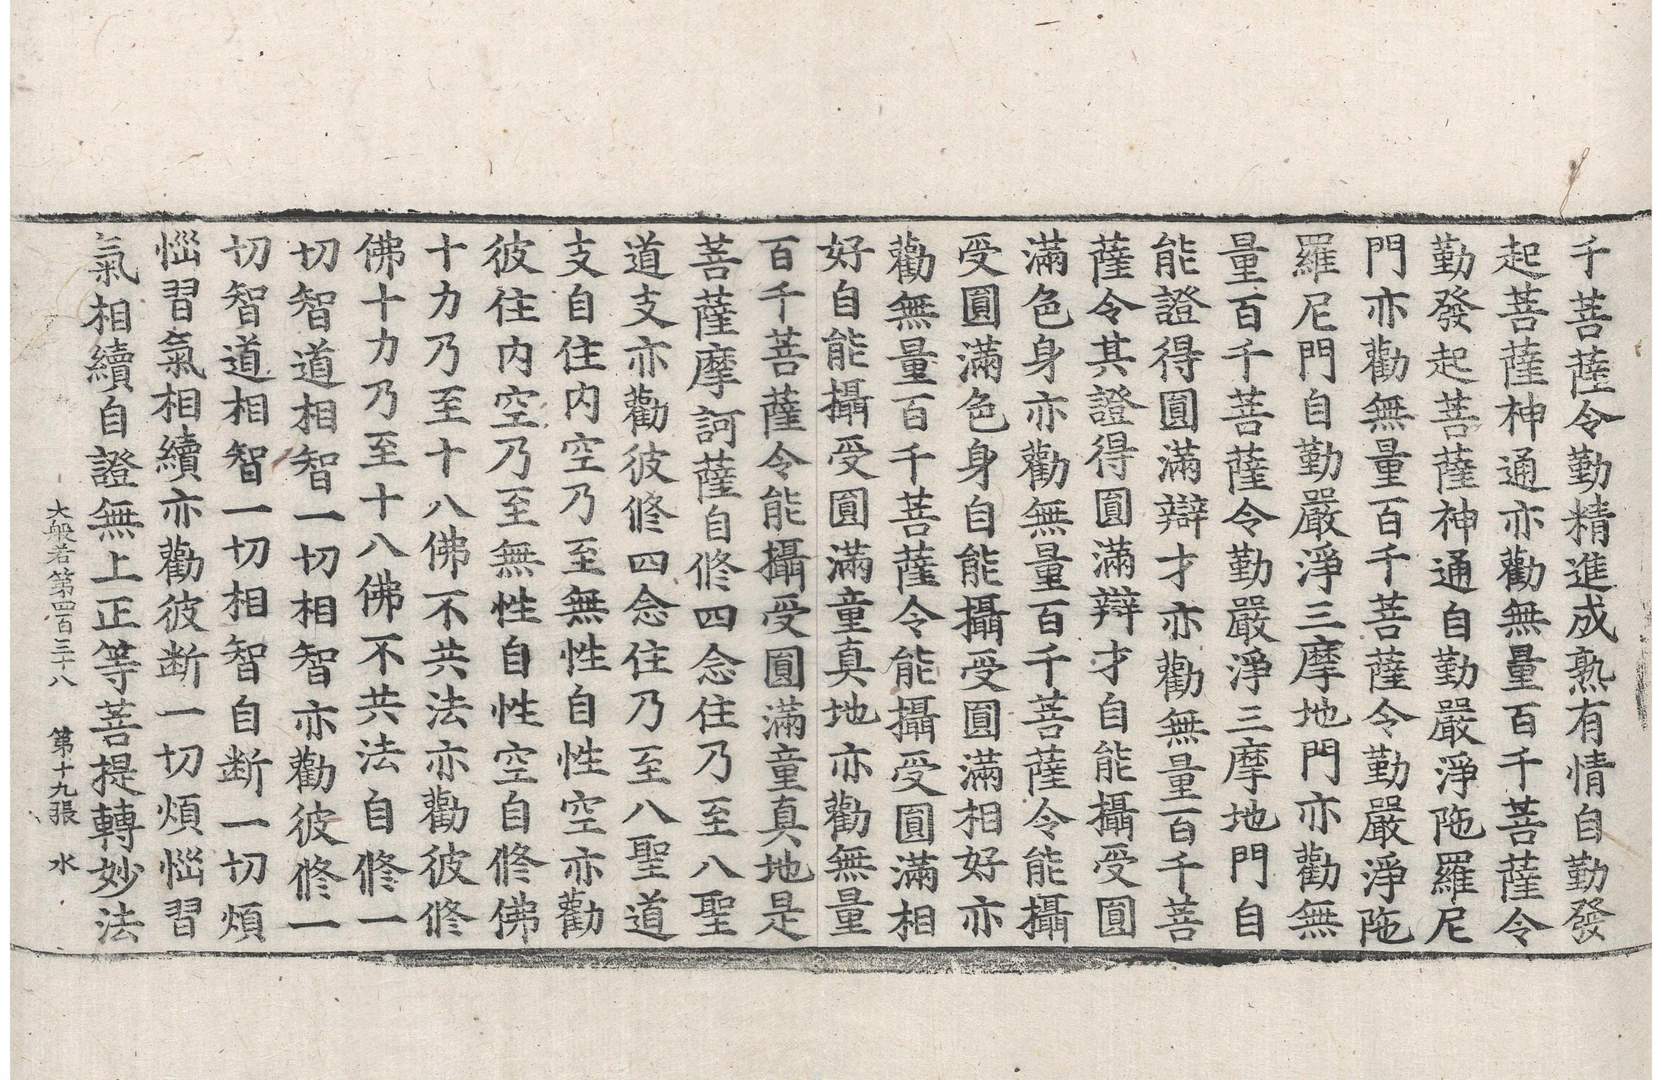 千菩薩令勤精進成熟有情自勤發
起菩薩神通亦勸無量百千菩薩令
勤發起菩薩神通自勤嚴淨陁羅尼
門亦勸無量百千菩薩令勤嚴淨陁
羅尼門自勤嚴淨三摩地門亦勸無
量百千菩薩令勤嚴淨三摩地門自
能證得圓滿辯才亦勸無量百千菩
薩令其證得圓滿辯才自能攝受圓
滿色身亦勸無量百千菩薩令能攝
受圓滿色身自能攝受圓滿相好亦
勸無量百千菩薩令能攝受圓滿相
好自能攝受圓滿童真地亦勸無量
百千菩薩令能攝受圓滿童真地是
菩薩摩訶薩自修四念住乃至八聖
道支亦勸彼修四念住乃至八聖道
支自住內空乃至無性自性空亦勸
彼住內空乃至無性自性空自修佛
十力乃至十八佛不共法亦勸彼修
佛十力乃至十八佛不共法自修一
切智道相智一切相智亦勸彼修一
切智道相智一切相智自断一切煩
惱習氣相續亦勸彼断一切煩惱習
氣相續自證無上正等菩提轉妙法
大般若第四百三十八 第十九張 水